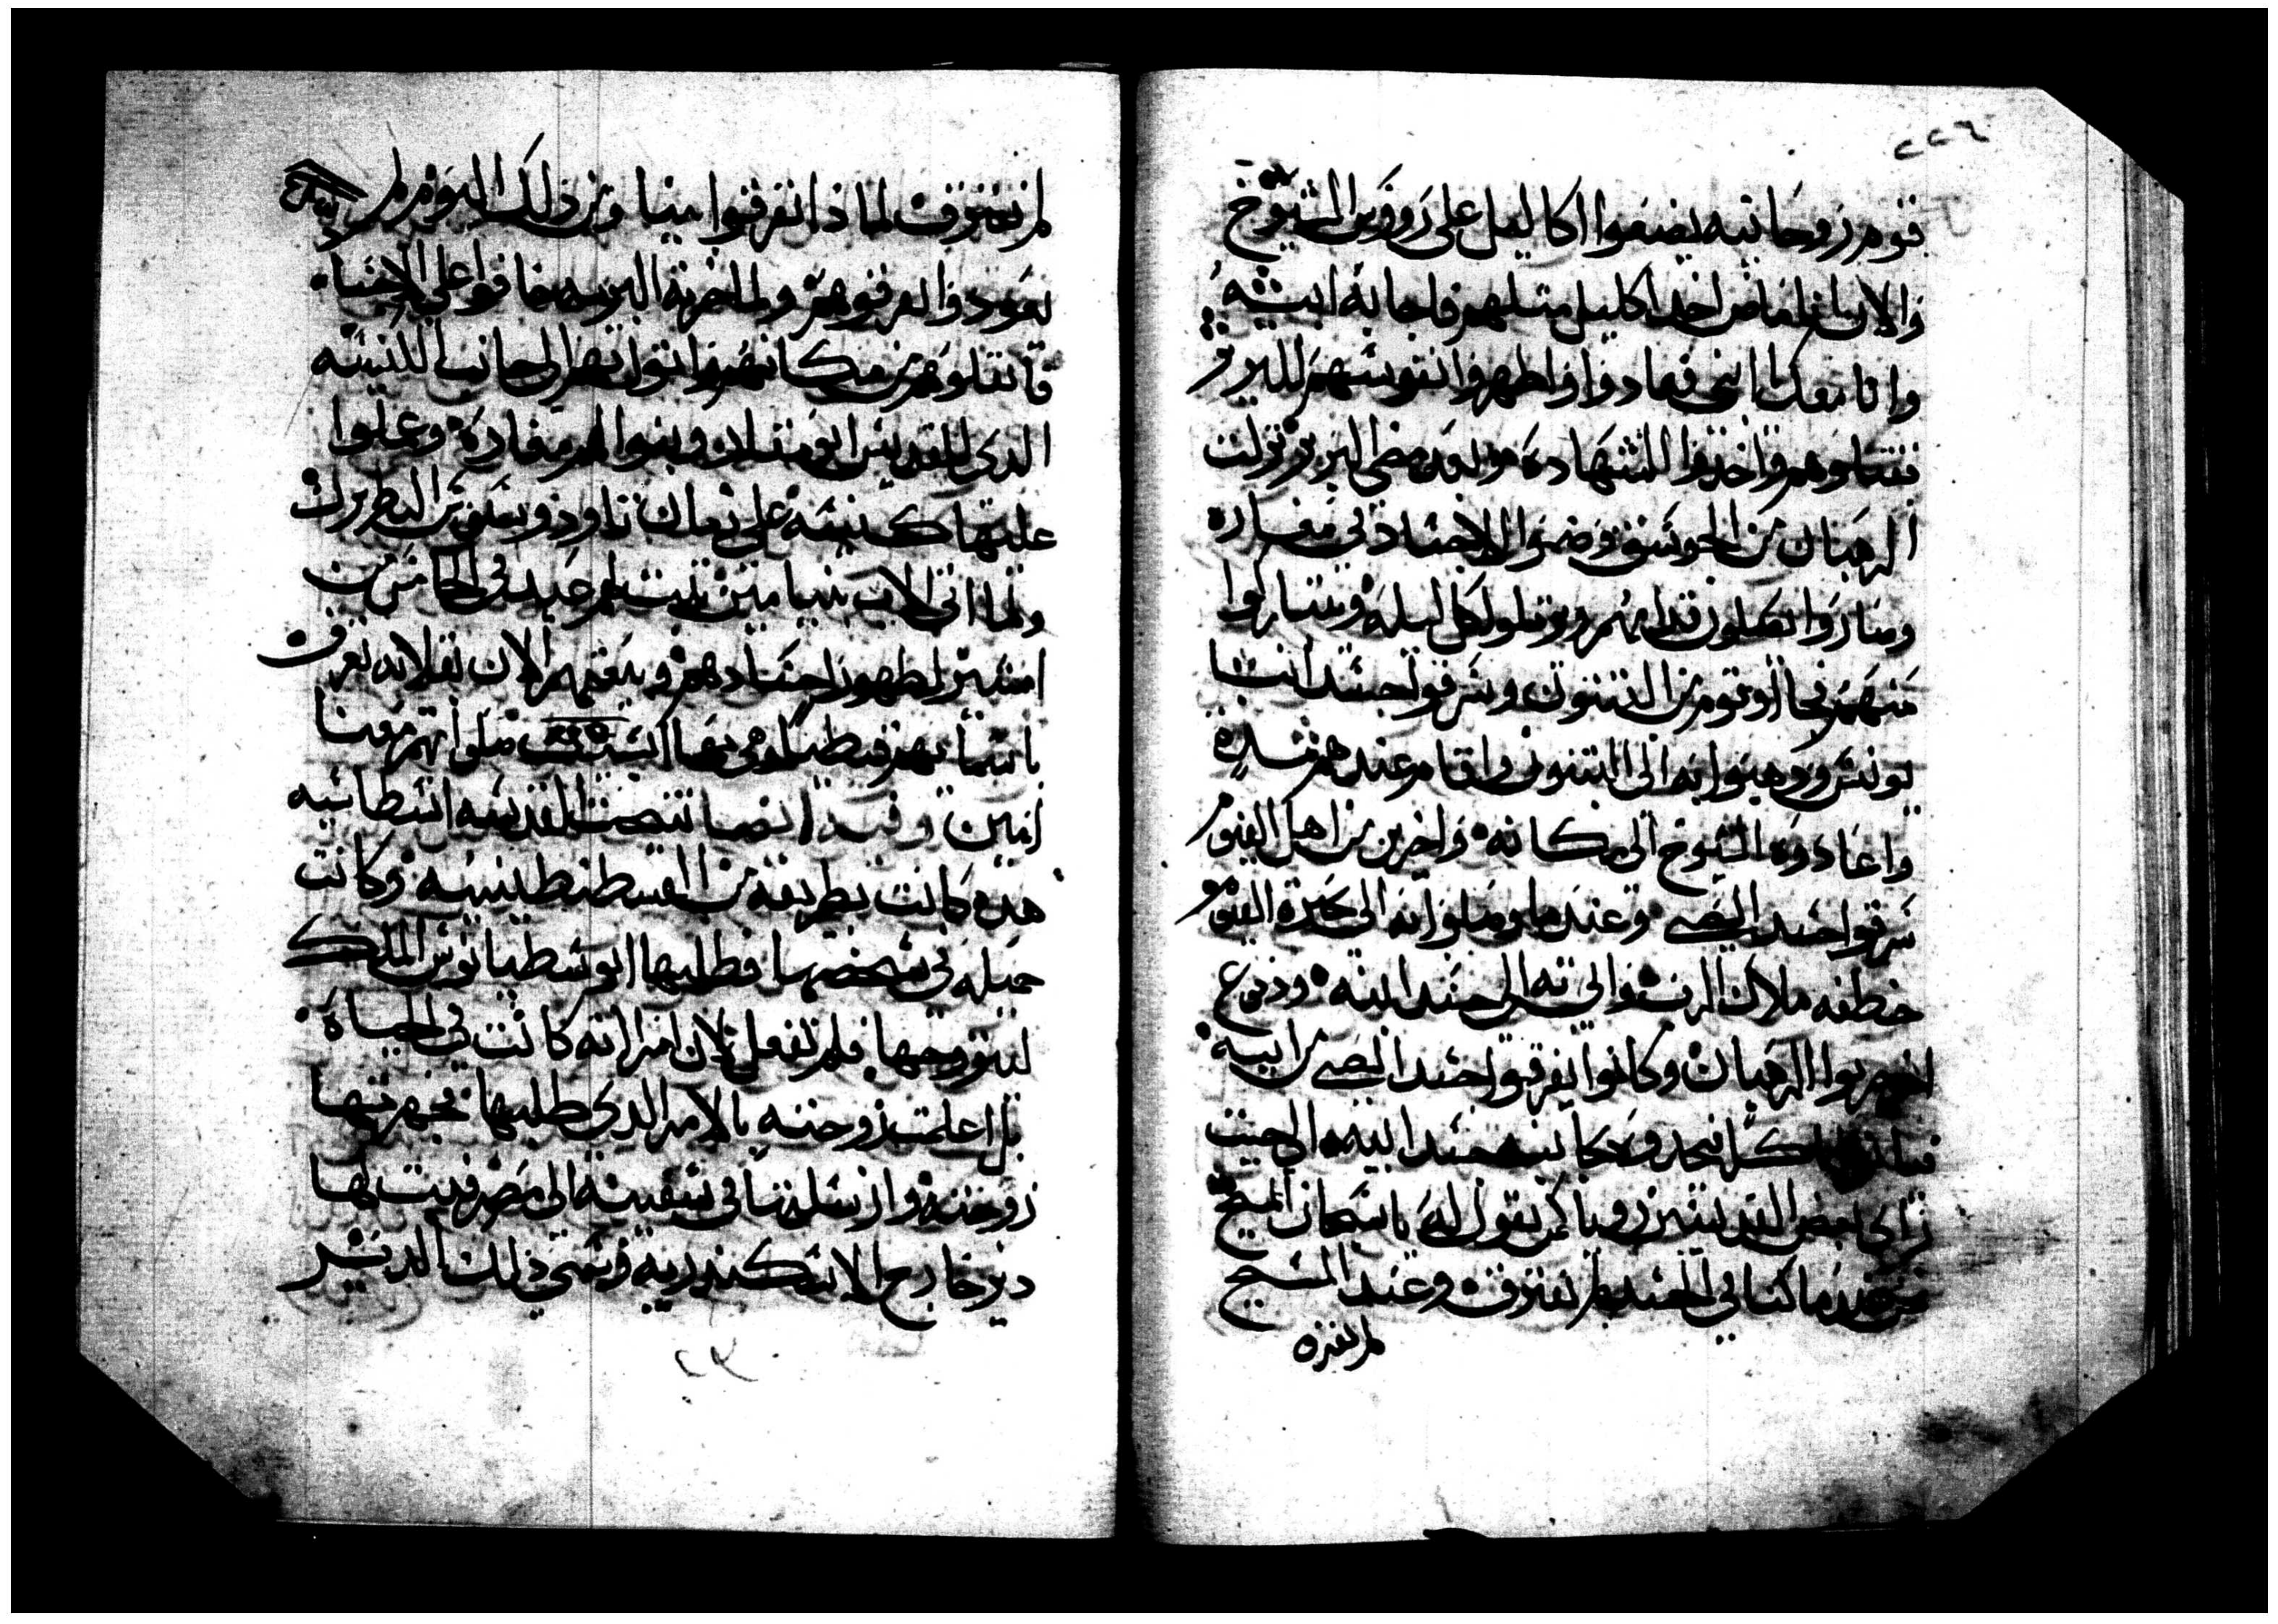 ٢٢٦
قوم روحانيه يضعوا اكاليل على رووس الشيوخ
والان ياخد اكليل مثلهم فاجابه ابنه
وانا معك يا ابي فعادوا واظهروا انفوسهم للبربر
فقتلوهم واخدوا الشهاده وبعد مضي البربر نزلت
الرهبان من الجوسق وضموا الاجساد في مغاره
وصاروا يصلون قدامهم ويرتلوا كل ليله ويتباركوا
منهم فجاوا قوم من البتنون وسرقوا جسد انبا
يونس وذهبوا به الى البتنون واقام عندهم مده
واعادوه الشيوخ الى مكانه واخرين من اهل الفيوم
سرقوا جسد الصبي وعندما وصلوا به الى بحيرة الفيوم
خطفه ملاك الرب واتى به الى جسد ابيه ودفوع
اخر الرهبان وكانوا يفرقوا جسد الصبي من ابيه
بكل يجدوه جانب جسد ابيه الى حيث
راى بعض القديسين رويا كمن يقول له يا سبحان المسيح
نحن عندما كنا في الجسد لم نفترق وعند المسيح
لم نفترق
لم نفترق لماذا تفرقوا بيننا ومن ذلك اليوم لم
يعودوا يفرقوهم ولما خربة البريه خافوا على الاجساد
فانقلوهم من مكانهم واتوا بهم الى جانب الكنيسه
الدي للقديس ابو مقار وبنوا لهم مغاره وعملوا
عليها كنيسه على زمان تاودوسيوس البطريرك
ولما اتى الاب بنيامين رتب لهم عيد في الخامس من
امشير لظهور اجسادهم وبيعتهم الان بقلايه تعرف
باسمائهم قبطيا وهي بها صلواتهم معنا
امين وفيه ايضا تنيحت القديسه انسطاسيه
هده كانت بطريقه من القسطنطينيه وكانت
جميله في شخصها فطلبها ابوسطيانوس الملك
ليتزوجها فلم تفعل لان امراته كانت في الحياه
بل اعلمت زوجته بالامر الدي طلبها فجهزتها
زوجته وارسلتها في سفينه الى مصر وبنت لها
دير خارج الاسكندريه وسمي ذلك الدير